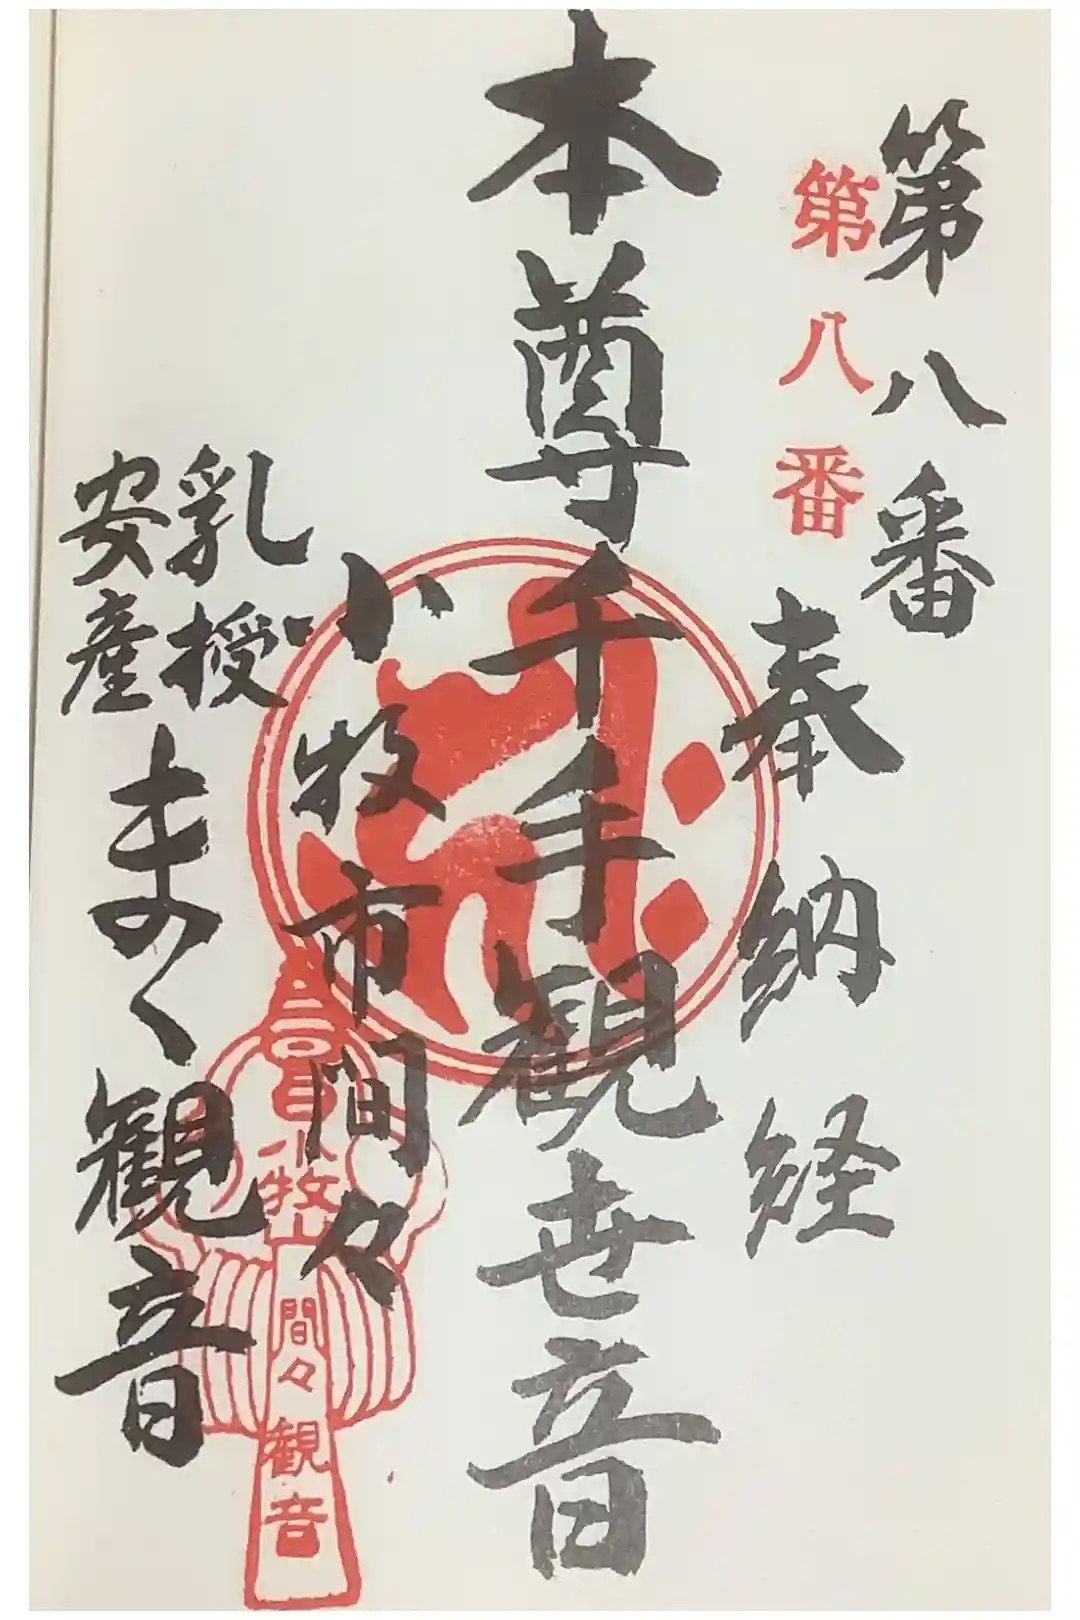 第八番
第八番
奉納経
本尊千手観世音
小牧市間々
乳授
安産
まゝ観音
小牧山
間々観音